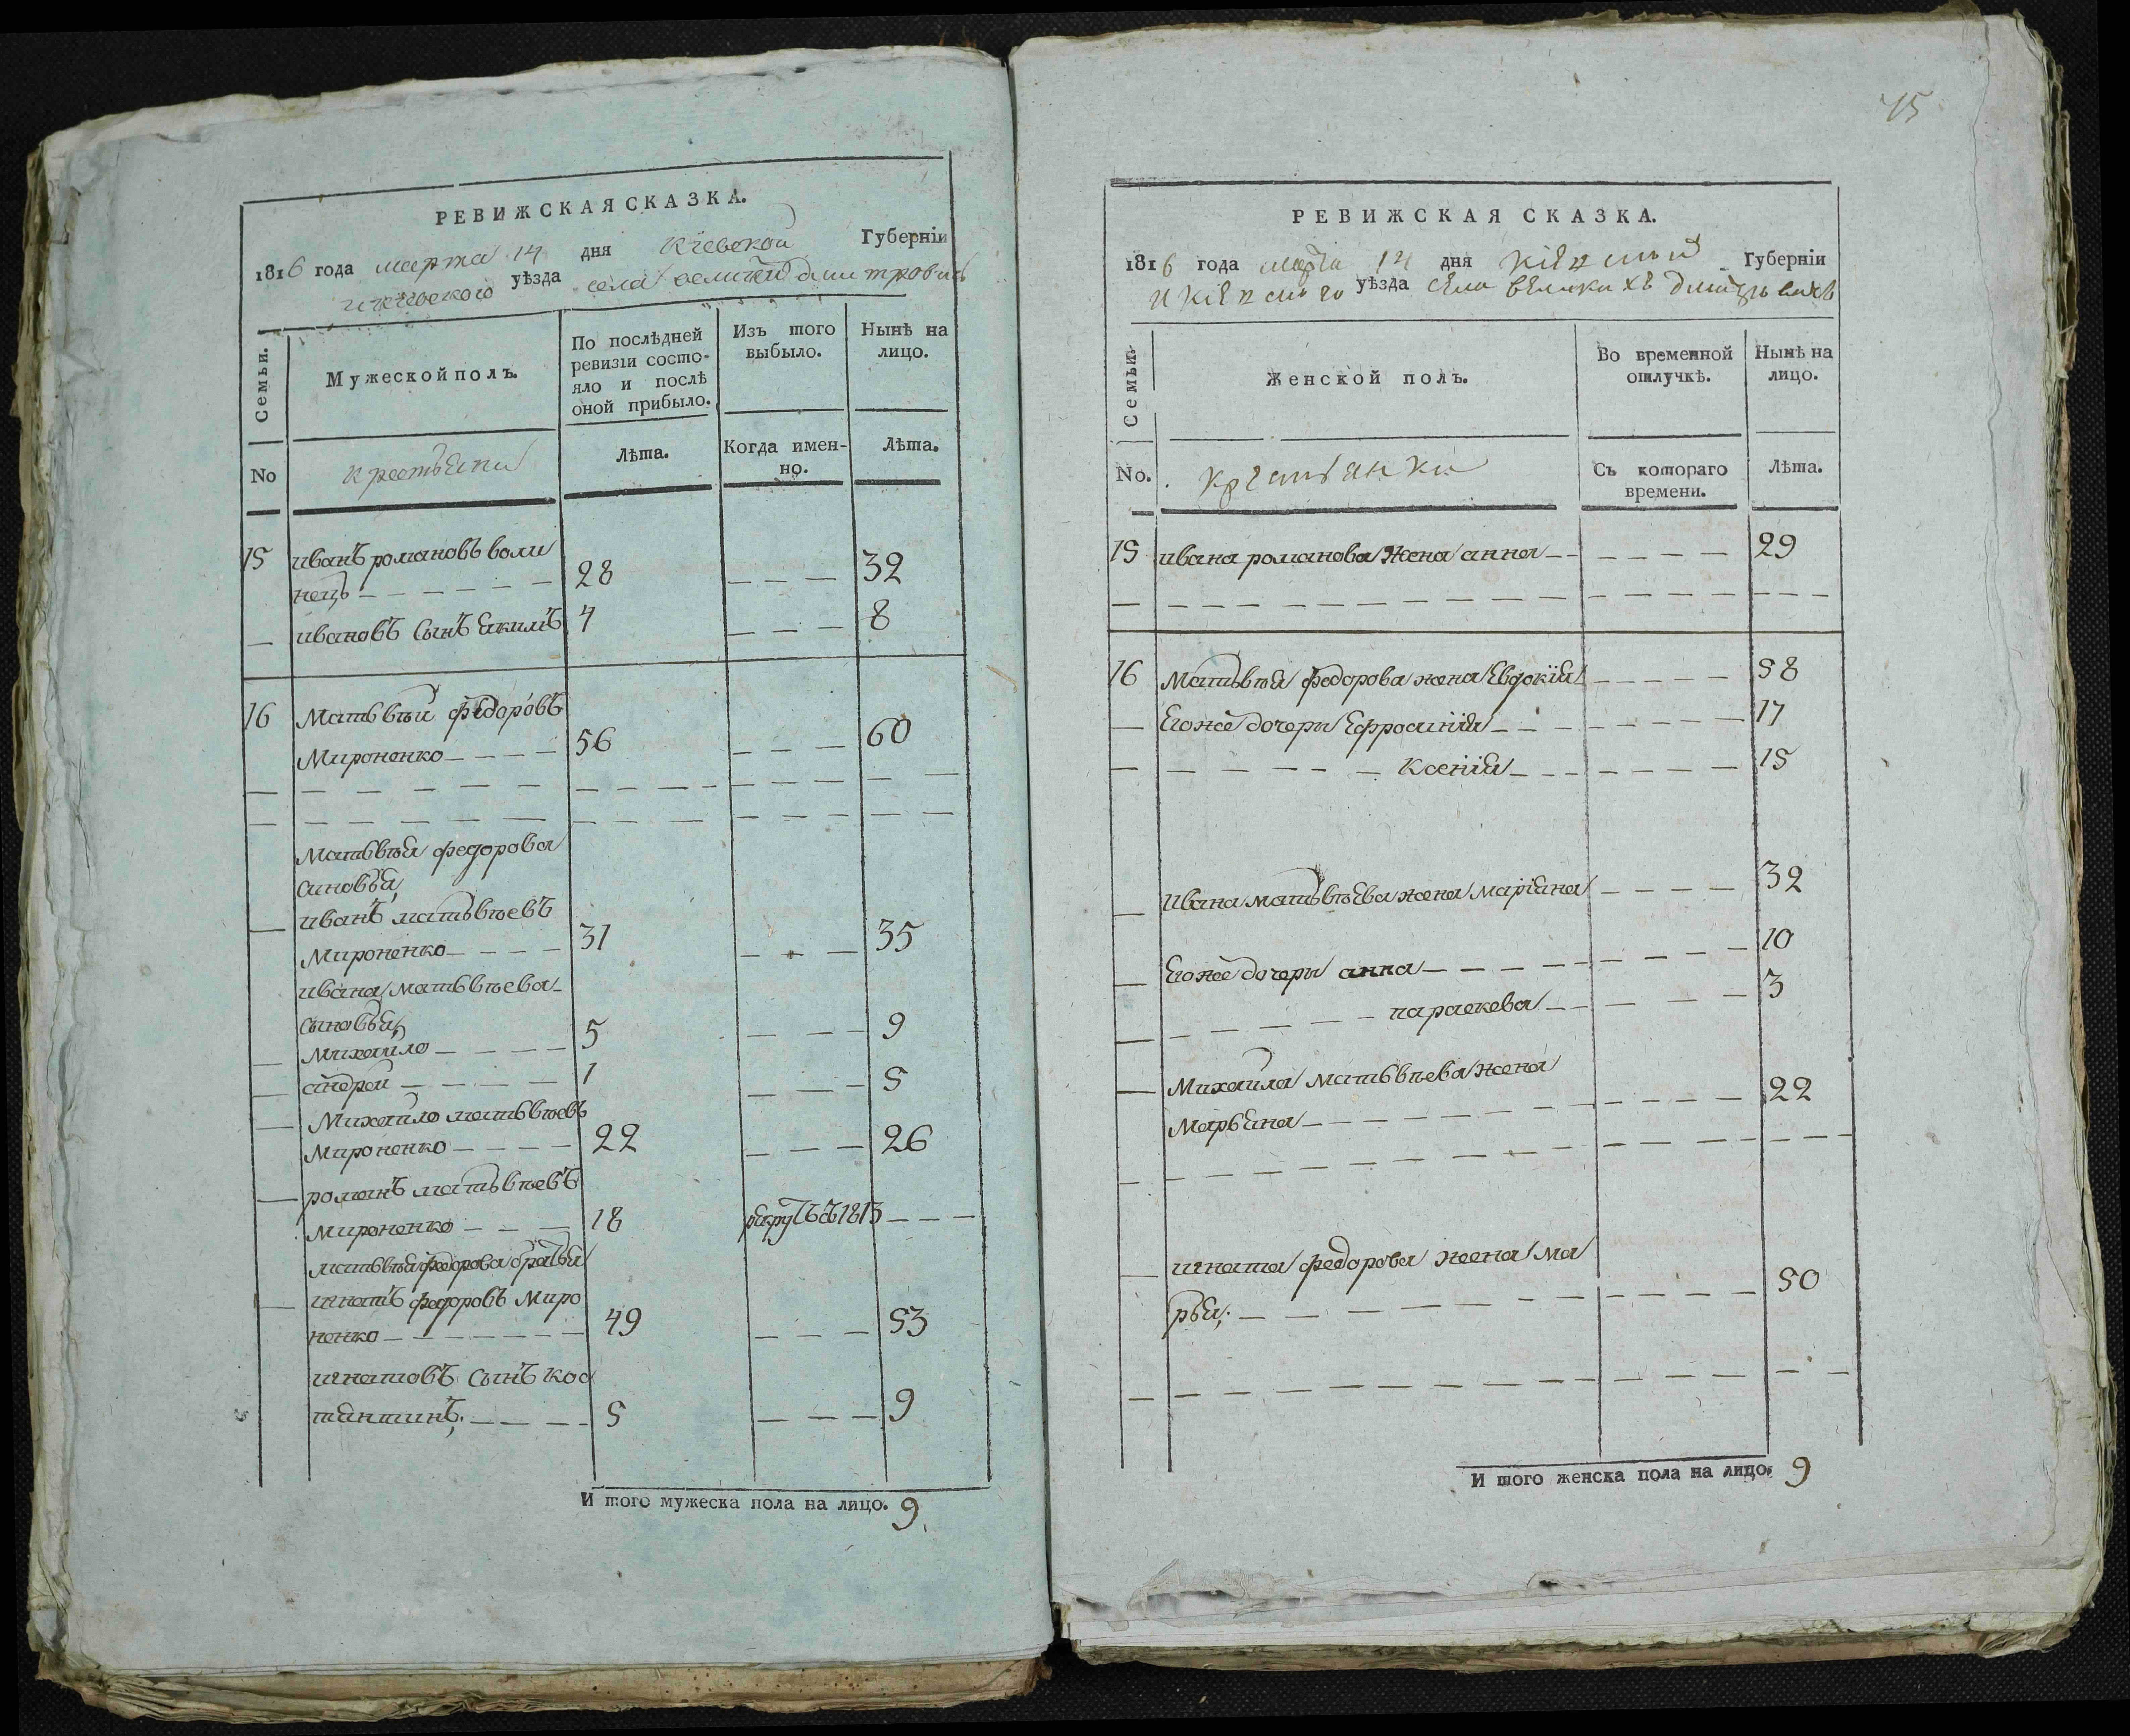 РЕВИЖСКАЯ СКАЗКА.
1816 года марта 14 дня Кіевской Губерніи
и кіевского уѣзда села великой дмитрович
Семьи.
Мужеской полъ.
По послѣдней ревизіи состояло и послѣ оной прибыло.
Изъ того выбыло.
Нынѣ на лицо.
No
крестьяни
Лѣта.
Когда именно.
Лѣта.
15 иванъ романовъ воли
нецъ 28 32
ивановъ сынъ Екимъ 4 8
16 Матьвѣй федоровъ
Мироненко 56 60
Матьвѣя федорова
синовья,
иванъ матьвѣевъ
Мироненко 31 35
ивана матьвѣева
сыновья,
михайло 5 9
андрей 1 5
Михайло матьвѣевъ
мироненко 22 26
романъ матьвѣевъ
мироненко 18 1813
матьвѣя федорова братья
игнатъ федоровъ Миро
ненко 49 53
игнатовъ сынъ кос
тантинъ, 5 9
И того мужеска пола на лицо. 9
45
РЕВИЖСКАЯ СКАЗКА.
1816 года марта 14 дня Кіевской Губерніи
и кіевского уѣзда села великихъ дмитровичъ
Семьи.
Женской полъ.
Во временной отлучкѣ.
Нынѣ на лицо.
No.
крестьянки
Съ котораго времени.
Лѣта.
15 ивана романова жена анна 29
16 Матьвѣя федорова жена Евдокія 58
Егоже дочери Ефросинія 17
Ксенія 15
Ивана матьвѣева жена маріяна 32
Егоже дочери анна 10
параскева 3
Михайла матьвѣева жена
марьяна 22
игната федорова жена ма
рья, 50
И того женска пола на лицо. 9